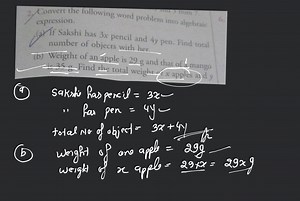 Convert the following word problem into algebraic
expression.
(a) If Sakshi has 3x pencil and 4y pen. Find total
number of objects with her.
(b) Weight of an apple is 29 g and that of a mango
is 35 g. Find the total weight x apples and y
(a) Sakshi has pencil = 3x
" has pen = 4y
total no of object = 3x + 4y
(b) weight of one apple = 29g
weight of x apple = 29×x = 29x g